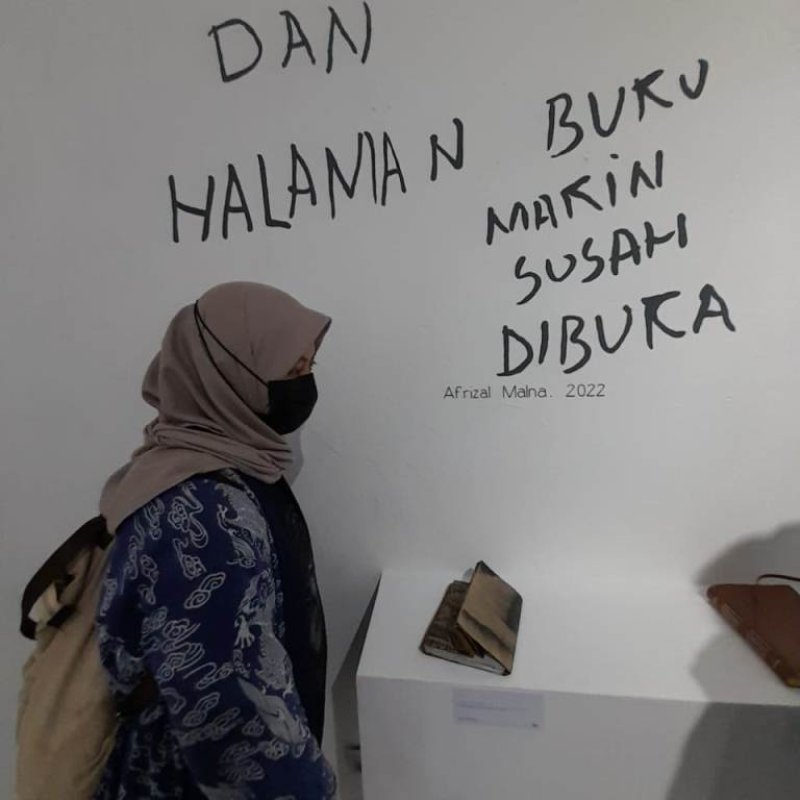 DAN
HALAMAN BUKU
MAKIN
SUSAH
DIBUKA
Afrizal Malna. 2022